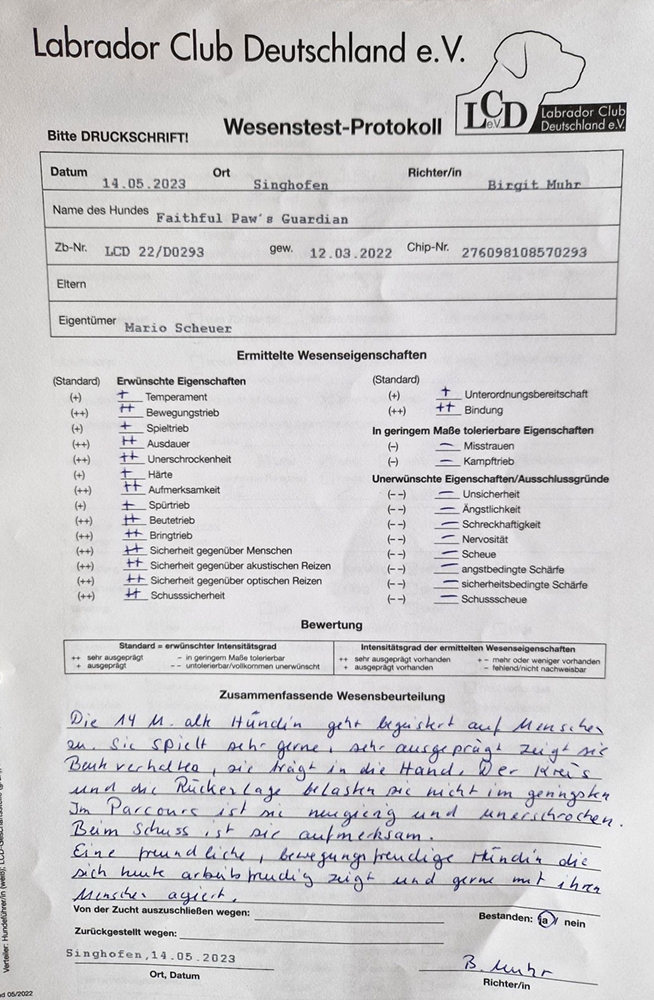 Labrador Club Deutschland e.V.
LCD e.V. Labrador Club
Deutschland e.V.
Bitte DRUCKSCHRIFT!
Wesenstest-Protokoll
Datum 14.05.2023 Ort Singhofen Richter/in Birgit Muhr
Name des Hundes Faithful Paw's Guardian
Zb-Nr. LCD 22/D0293 gew. 12.03.2022 Chip-Nr. 276098108570293
Eltern
Eigentümer Mario Scheuer
Ermittelte Wesenseigenschaften
(Standard) Erwünschte Eigenschaften
(+) + Temperament
(++) ++ Bewegungstrieb
(+) + Spieltrieb
(++) ++ Ausdauer
(++) ++ Unerschrockenheit
(+) + Härte
(++) ++ Aufmerksamkeit
(+) + Spürtrieb
(++) ++ Beutetrieb
(++) ++ Bringtrieb
(++) ++ Sicherheit gegenüber Menschen
(++) ++ Sicherheit gegenüber akustischen Reizen
(++) ++ Sicherheit gegenüber optischen Reizen
(++) ++ Schusssicherheit
(Standard)
(+) + Unterordnungsbereitschaft
(++) ++ Bindung
In geringem Maße tolerierbare Eigenschaften
(–) – Misstrauen
(–) – Kampftrieb
Unerwünschte Eigenschaften/Ausschlussgründe
(– –) – Unsicherheit
(– –) – Ängstlichkeit
(– –) – Schreckhaftigkeit
(– –) – Nervosität
(– –) – Scheue
(– –) – angstbedingte Schärfe
(– –) – sicherheitsbedingte Schärfe
(– –) – Schussscheue
Bewertung
Standard = erwünschter Intensitätsgrad
++ sehr ausgeprägt – in geringem Maße tolerierbar
+ ausgeprägt – – untolerierbar/vollkommen unerwünscht
Intensitätsgrad der ermittelten Wesenseigenschaften
++ sehr ausgeprägt vorhanden + – mehr oder weniger vorhanden
+ ausgeprägt vorhanden – fehlend/nicht nachweisbar
Zusammenfassende Wesensbeurteilung
Die 14 M. alte Hündin geht begeistert auf Menschen
zu. Sie spielt sehr gerne, sehr ausgeprägt zeigt sie
Beuteverhalten, sie trägt in die Hand. Der Kreis
und die Rückenlage belasten sie nicht im geringsten
Im Parcours ist sie neugierig und unerschrocken.
Beim Schuss ist sie aufmerksam.
Eine freundliche, bewegungsfreudige Hündin die
sich heute arbeitsfreudig zeigt und gerne mit ihren
Menschen agiert.
Von der Zucht auszuschließen wegen: Bestanden: ja / nein
Zurückgestellt wegen:
Singhofen,14.05.2023 B. Muhr
Ort, Datum Richter/in